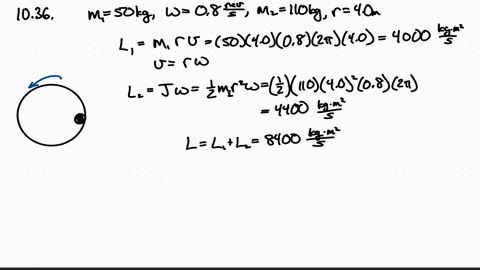 10.36. m₁=50kg, ω=0.8 rev/s, m₂=110kg, r=4.0m
L₁ = m₁ r v = (50)(4.0)(0.8)(2π)(4.0) = 4000 kg·m²/s
v = rω
L₂ = Jω = ½m₂r²ω = (½)(110)(4.0)²(0.8)(2π)
= 4400 kg·m²/s
L = L₁+L₂ = 8400 kg·m²/s